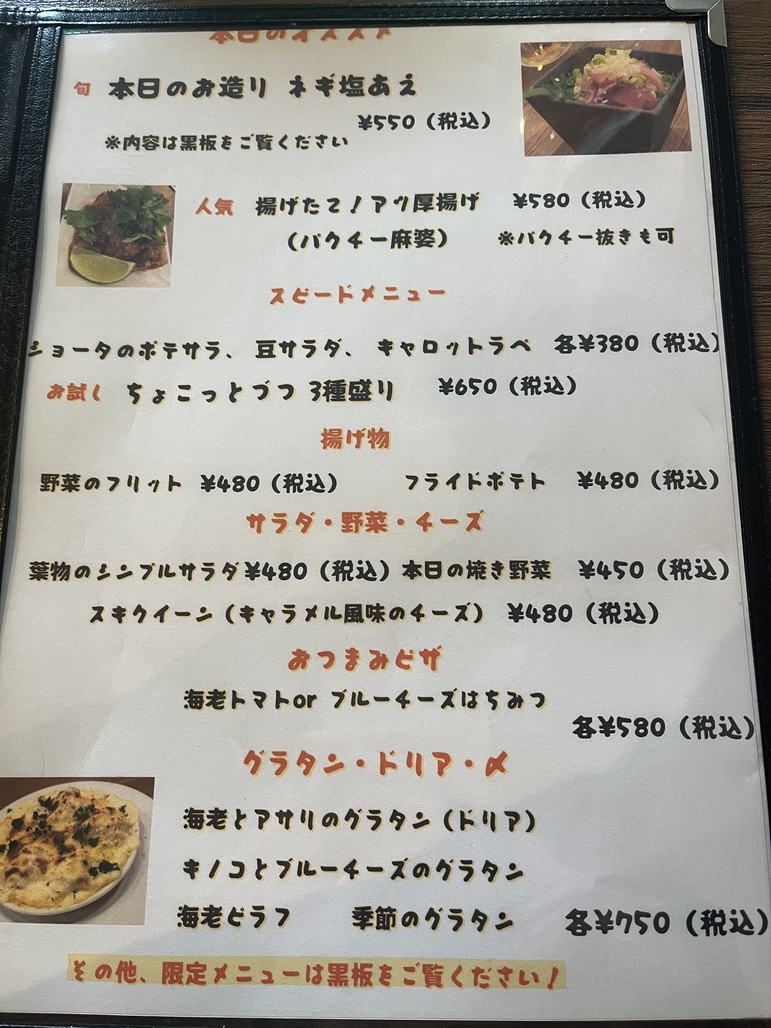 本日のオススメ
旬 本日のお造り ネギ塩あえ
¥550（税込）
※内容は黒板をご覧ください
人気 揚げたて！アツ厚揚げ ¥580（税込）
（パクチー麻婆） ※パクチー抜きも可
スピードメニュー
ショータのポテサラ、 豆サラダ、 キャロットラペ 各¥380（税込）
お試し ちょこっとづつ 3種盛り ¥650（税込）
揚げ物
野菜のフリット ¥480（税込） フライドポテト ¥480（税込）
サラダ・野菜・チーズ
葉物のシンプルサラダ¥480（税込） 本日の焼き野菜 ¥450（税込）
スキクイーン（キャラメル風味のチーズ） ¥480（税込）
おつまみピザ
海老トマトor ブルーチーズはちみつ
各¥580（税込）
グラタン・ドリア・〆
海老とアサリのグラタン（ドリア）
キノコとブルーチーズのグラタン
海老ピラフ 季節のグラタン 各¥750（税込）
その他、限定メニューは黒板をご覧ください！